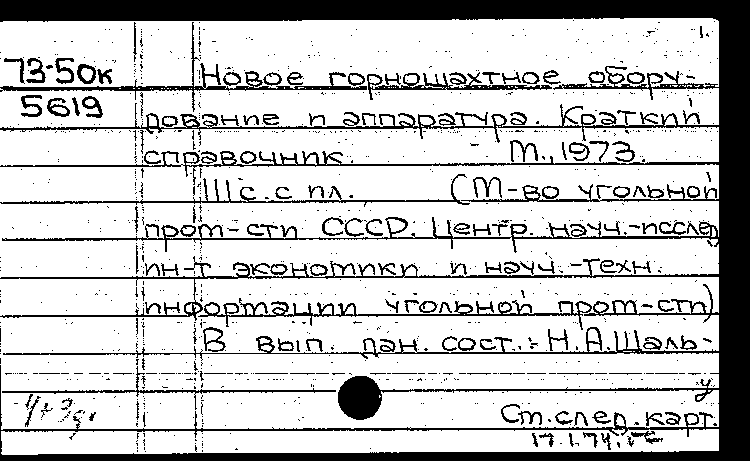 1.
73-50к
5619
Новое горношахтное обору-
дование и аппаратура. Краткий
справочник. - М., 1973.
111с. с ил. (М-во угольной
пром-сти СССР. Центр. науч.-исслед
ин-т экономики и науч.-техн.
информации угольной пром-сти)
В вып. дан. сост.: Н.А.Шаль-
у
См.след.карт.
17.1.74.